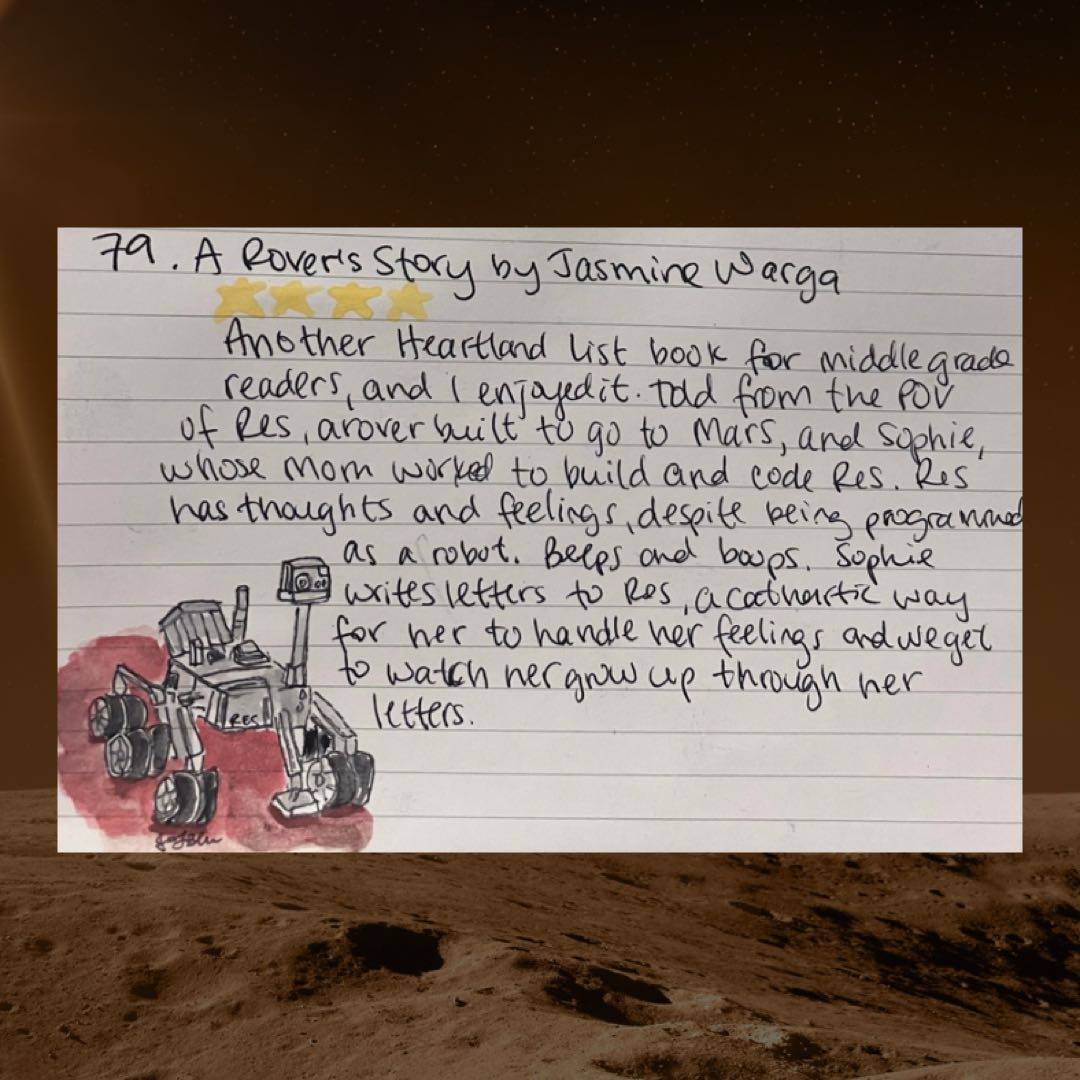 79. A Rover's Story by Jasmine Warga
Another Heartland List book for middle grade
readers, and I enjoyed it. Told from the POV
of Res, a rover built to go to Mars, and Sophie,
whose Mom worked to build and code Res. Res
has thoughts and feelings, despite being programmed
as a robot. Beeps and boops. Sophie
writes letters to Res, a cathartic way
for her to handle her feelings and we get
to watch her grow up through her
letters.
RES